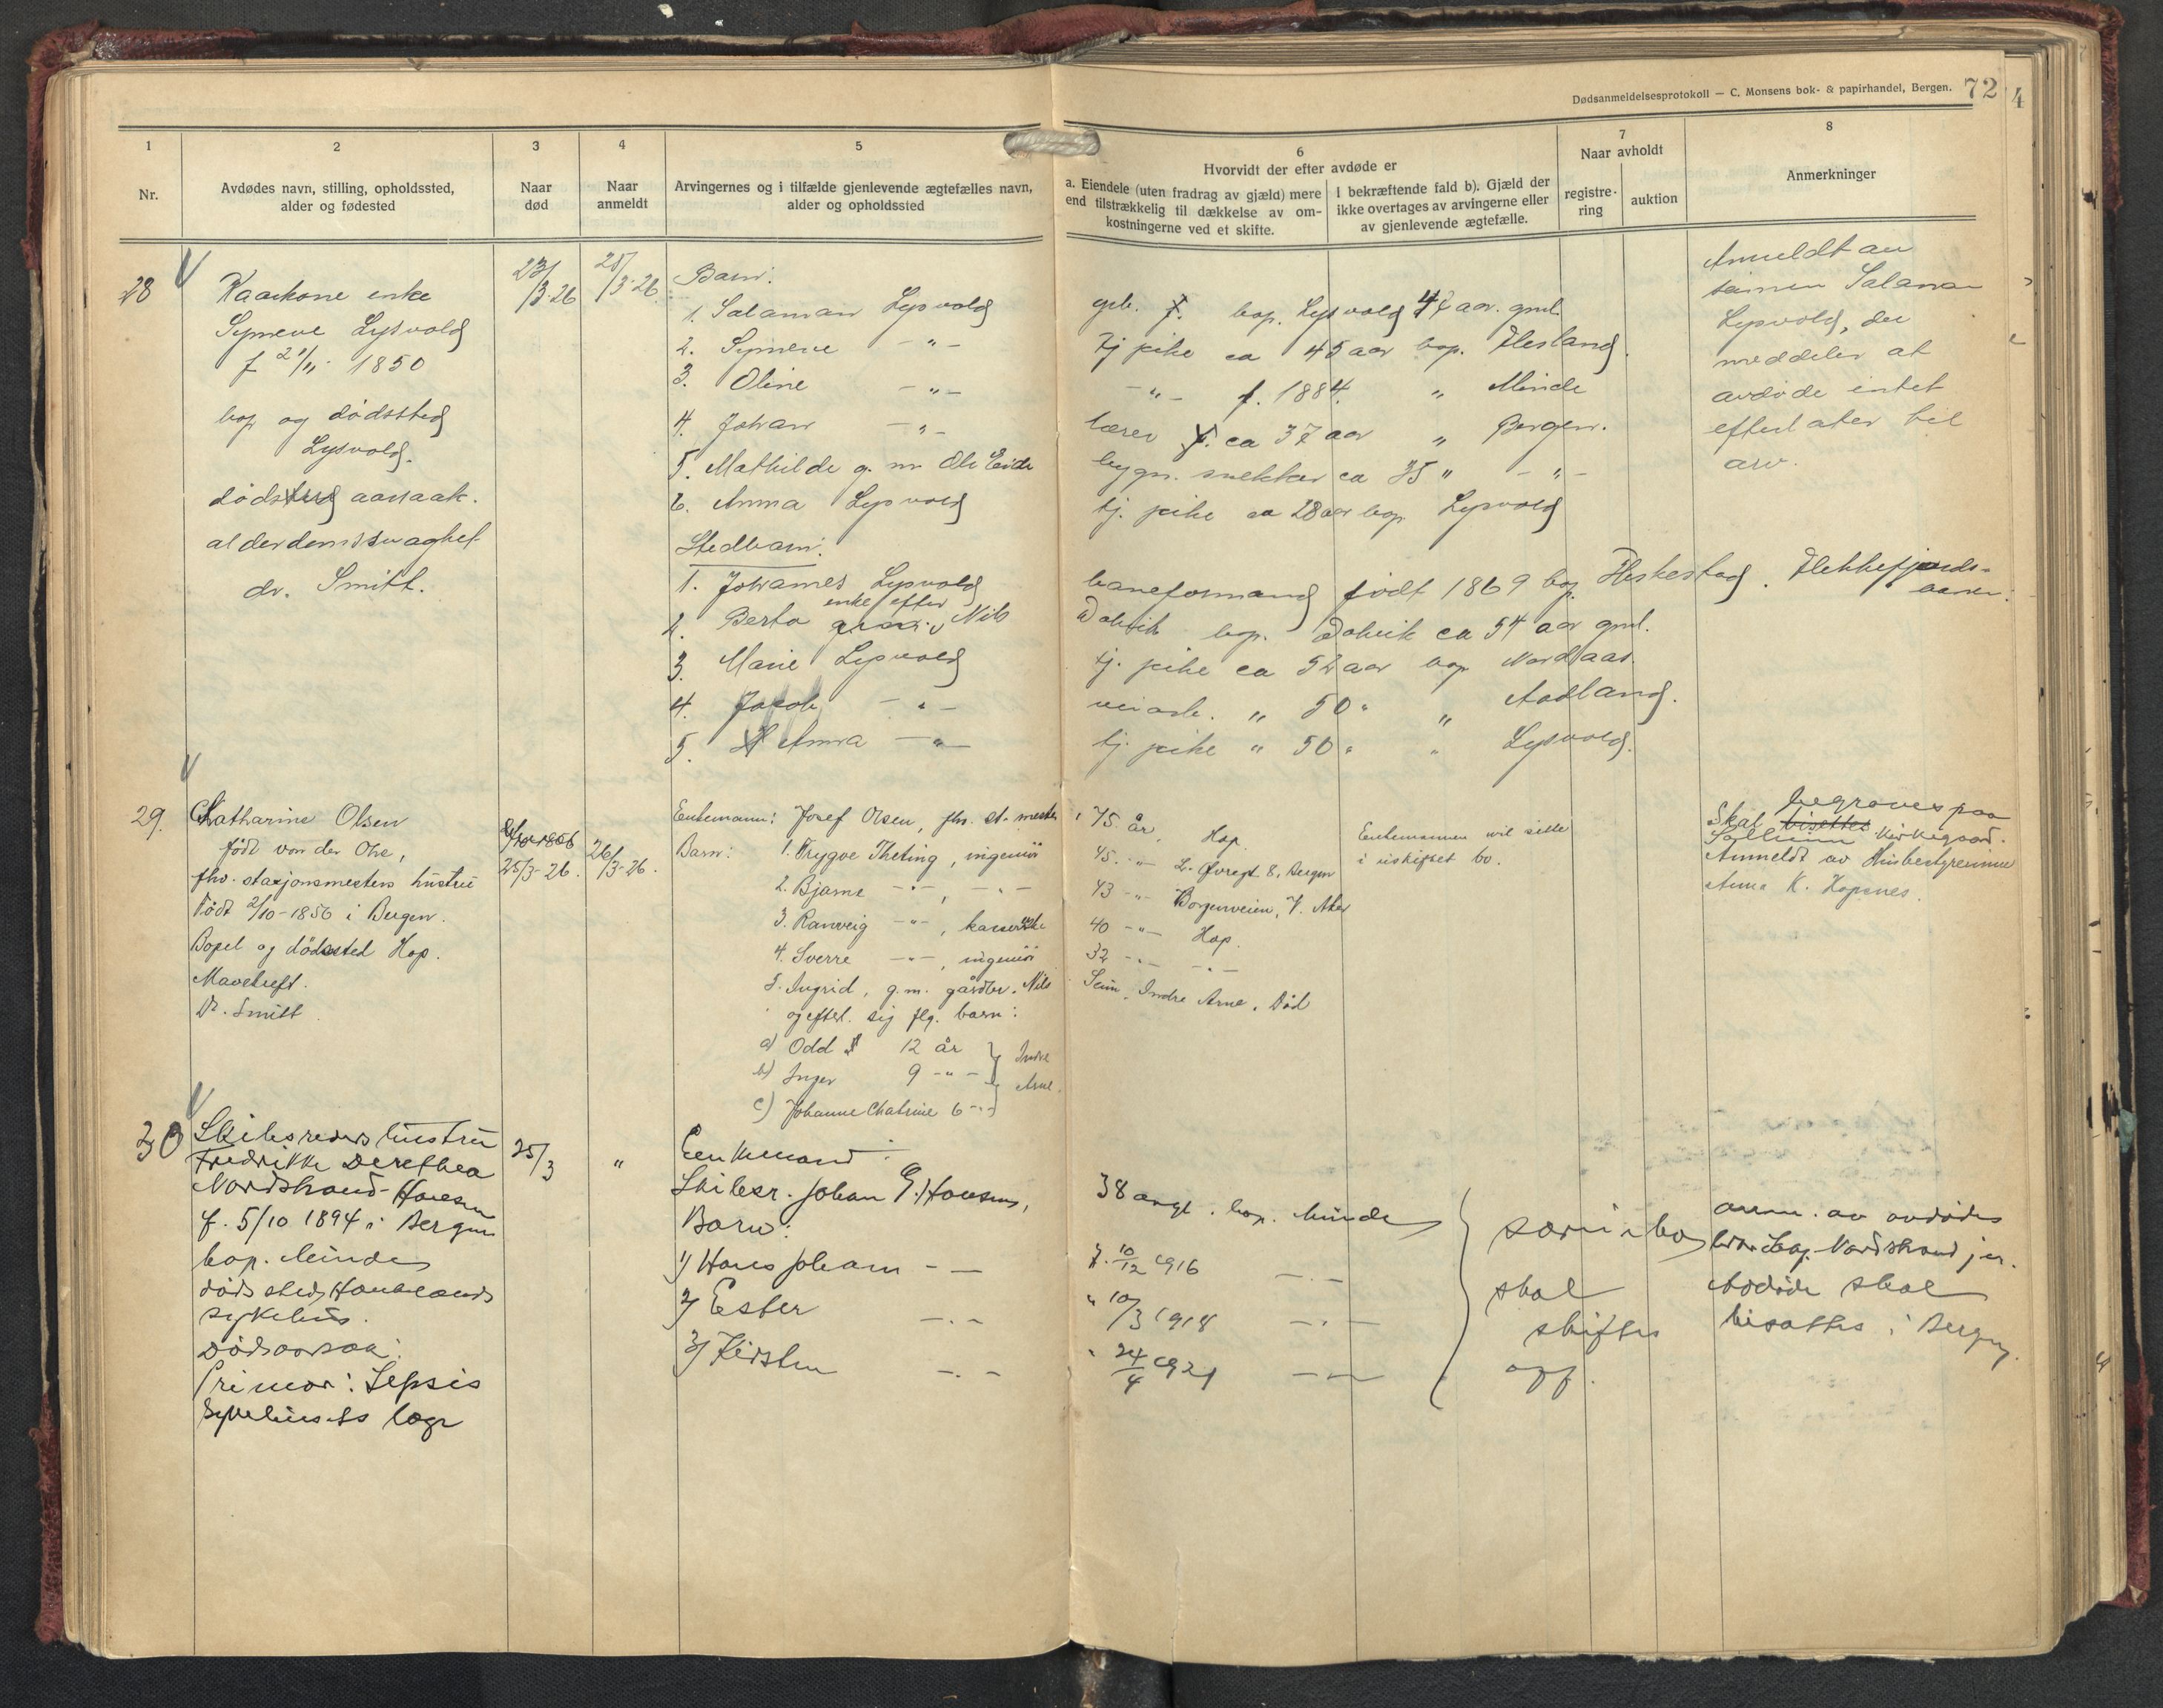 Dødsanmeldelsesprotokoll — C. Monsens bok- & papirhandel, Bergen. 72
4
1
Nr.
2
Avdødes navn, stilling, opholdssted,
alder og fødested
3
Naar
død
4
Naar
anmeldt
5
Arvingernes og i tilfælde gjenlevende ægtefælles navn,
alder og opholdssted
6
Hvorvidt der efter avdøde er
a. Eiendele (uten fradrag av gjæld) mere
end tilstrækkelig til dækkelse av om-
kostningerne ved et skifte.
I bekræftende fald b). Gjæld der
ikke overtages av arvingerne eller
av gjenlevende ægtefælle.
7
Naar avholdt
registre-
ring
auktion
8
Anmerkninger
28
Kaarkone enke
Synneve Lysvold
f 1850
bop og dødssted
Lysvold.
aarsaak.
alderdomssvaghet
dr. Smitt.
23/3-26
25/3-26
Barn:
1. Salaman Lysvold
2. Synneve -"-
3. Oline -"-
4. Johan -"-
5. Mathilde g. m. Ole Eide
6. Anna Lysvold
Stedbarn:
1. Johannes Lysvold
2. Berta enke efter Nils
3. Marie Lysvold
4. Jakob -"-
5. Anna -"-
bop. Lysvold 47 aar. gml.
tj pike ca 45 aar bop. Flesland.
-"- f. 1884. " Minde
lærer ca 37 aar " Bergen.
bygn. snekker ca 35 " -"-
tj. pike ca 28 aar bop Lysvold
baneformand født 1869 bop. Heskestad. Flekkefjords-
banen.
Dolvik bop. Dolvik ca 54 aar gml.
tj. pike ca 52 aar bop Nordaas.
veiarb. " 50 " " Aadland.
tj. pike " 50 " " Lysvold.
Anmeldt av
sønnen Salaman
Lysvold, der
meddeler at
avdøde intet
efterlater til
arv.
29.
Chatharine Olsen
født von der Ohe,
fhv. stasjonsmesters hustru
Født 2/10-1856 i Bergen.
Bopel og dødssted Hop.
Mavekreft.
Dr. Smitt
25/3-26.
26/3-26.
Enkemann: Josef Olsen, fhv. st. mester
Barn: 1. Trygve Theting, ingeniør
2. Bjarne -"-, -"-
3. Ranveig -"-, kasserske
4. Sverre -"-, ingeniør
5. Ingrid, g.m. gårdbr. Nils
og efterl. sig flg. barn:
a) Odd 12 år
b) Inger 9 -"-
c) Johanne Chatrine 6 -"-
Indre
Arne.
75 år, Hop.
45 -"- L. Øvregt 8, Bergen
43 -"- Borgenveien, V. Aker
40 -"- Hop.
32 -"- -"-
Seim, Indre Arne. Død
Enkemannen vil sitte
i uskiftet bo.
begraves paa
Skal bisættes kirkegaard.
Anmeldt av Husbestyrerinne
Anna K. Hopsnes.
30
Skibsreders hustru
Fredrikke Dorethea
Nordstrand-Hansen
f. 5/10 1894 i Bergen
bop. Minde
dødssted Haukelands
sykehus.
Dødsaarsak:
Primær: Sepsis
Sykehusets læge
25/3
"
Enkemand:
Skibsr. Johan G. Hansen,
Barn:
1) Hans Johan -"-
2) Ester -"-
3) Kirsten -"-
38 aar gl. bop. Minde
f. 10/12 1916 -"-
" 10/3 1918 -"-
" 24/4 1921 -"-
særeiebo
skal
skiftes
off.
anm. av avdødes
bror Nordstrand jr.
Avdøde skal
bisættes i Bergen.